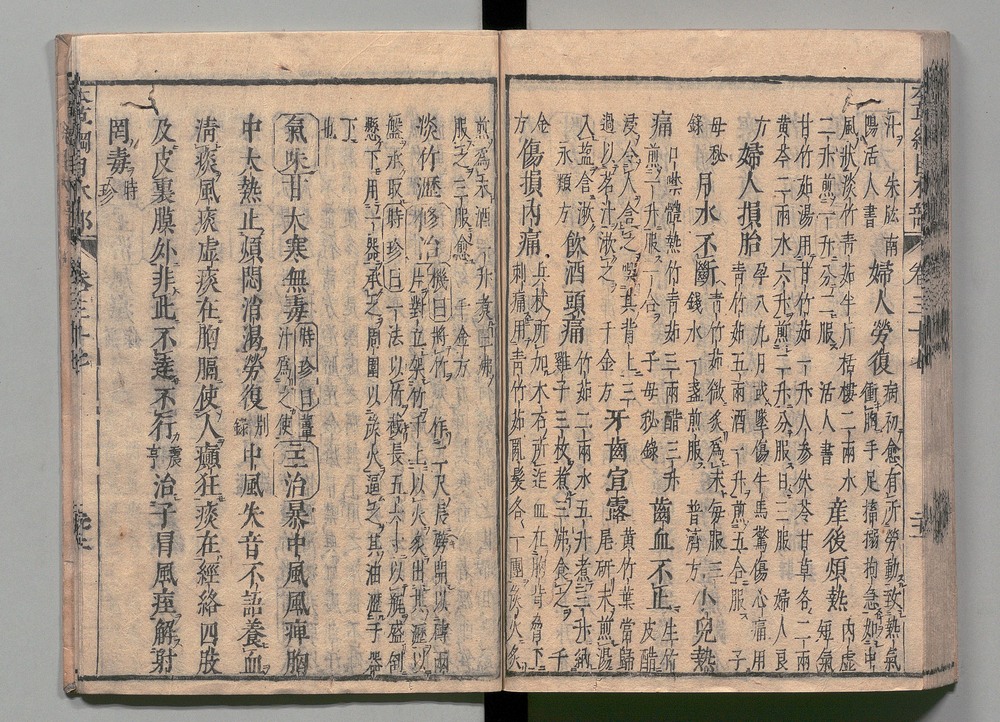 汁 朱肱南
陽活人書 婦人勞復 病初愈有所勞動致熱氣
風狀淡竹青茹半斤栝樓二兩水 衝胸手足搐搦拘急如中
二升煎一升分二服 活人書 產後煩熱 內虛短氣
甘竹茹湯用甘竹茹一升人參伏苓甘草各二兩
黃芩二兩水六升煎二升分服日三服 婦人良
方 婦人損胎 孕八九月或墜傷牛馬驚傷心痛用青竹茹五兩酒一升煎五合服 子
母秘錄 月水不斷 青竹茹微炙為末每服三錢水一盞煎服 普濟方 小兒熱
痛 口噤體熱竹青茹三兩醋三升煎一升服一合 子母秘錄 齒血不止 生竹皮醋
浸令人含之噀其背上三過以茗汁漱之 千金方 牙齒宣露 黃竹葉當歸尾研末煎湯
入鹽含漱 永類方 飲酒頭痛 竹茹二兩水五升煮三升納雞子三枚煮三沸食之 千
金方 傷損內痛 兵杖所加木石所迮血在胸背脅下刺痛用青竹茹亂髮各一團炭火炙
煎為末酒一升煮三沸服之三服愈 千金方
淡竹瀝 修治 機曰將竹 作二尺長劈開以磚兩片對立架竹于上以火炙出其瀝以
盤承取時珍曰一法以竹截長五六寸以瓶盛倒懸下用一器承之周圍以炭火逼之其油瀝于器
下也
氣味 甘大寒無毒 時珍曰薑汁為之使 主治 暴中風風痺胸
中大熱止煩悶消渴勞復 別錄 中風失音不語養血
清痰風痰虛痰在胸膈使人癲狂痰在經絡四肢
及皮裏膜外非此不達不行 震亨 治子冒風痓解射
罔毒 時珍
本草綱目木部 卷三十七